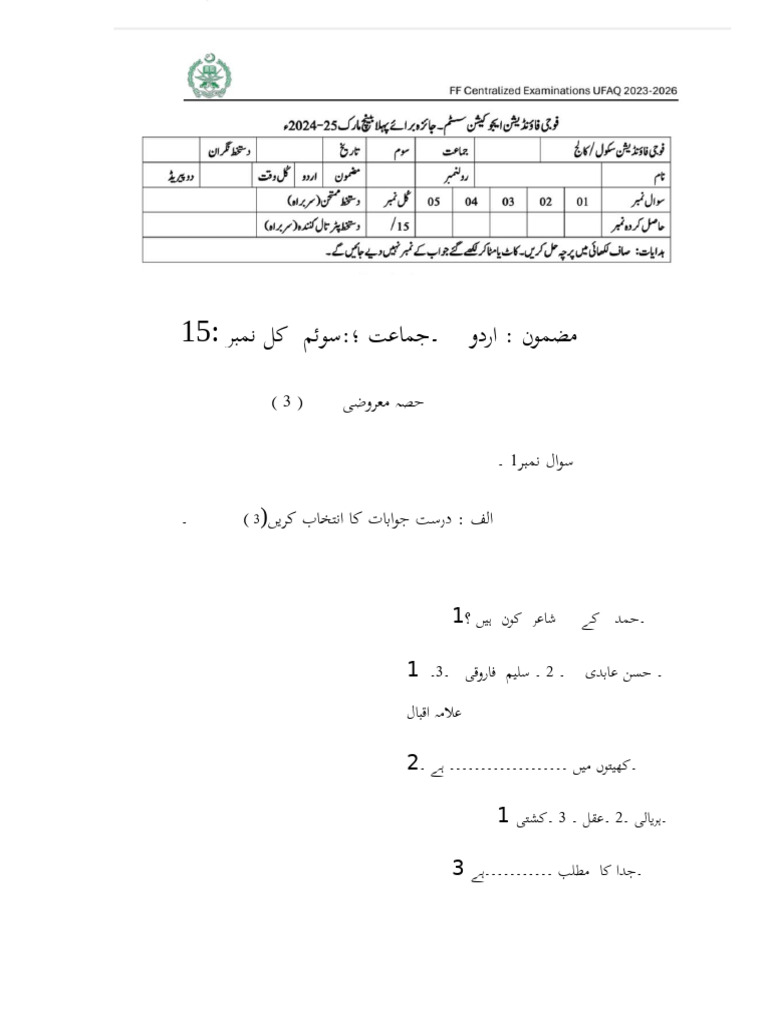 FF Centralized Examinations UFAQ 2023-2026
فوجی فاؤنڈیشن ایجوکیشن سسٹم۔ جائزہ برائے پہلا بینچ مارک 25-2024ء
فوجی فاؤنڈیشن سکول/کالج جماعت سوم تاریخ دستخط نگران
نام رولنمبر مضمون اردو کُل وقت دو پیریڈ
سوال نمبر 01 02 03 04 05 کُل نمبر دستخط ممتحن (سربراہ)
حاصل کردہ نمبر /15 دستخط پڑتال کنندہ (سربراہ)
ہدایات: صاف لکھائی میں پرچہ حل کریں۔ کاٹ یا مٹا کر لکھے گئے جواب کے نمبر نہیں دیے جائیں گے۔
مضمون : اردو ۔جماعت ؛:سوئم کل نمبر :15
حصہ معروضی ( 3 )
سوال نمبر1 ۔
الف : درست جوابات کا انتخاب کریں(3 ) ۔
۔حمد کے شاعر کون ہیں ؟1
۔ حسن عابدی ۔ 2 ۔ سلیم فاروقی ۔3۔ 1
علامہ اقبال
۔کھیتوں میں ------------------- ہے ۔2
۔ہریالی ۔2 ۔عقل ۔ 3 ۔کشتی 1
۔جدا کا مطلب -----------ہے 3